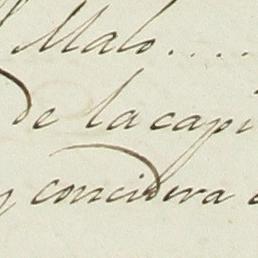 Malo....
de la capi
y concidera